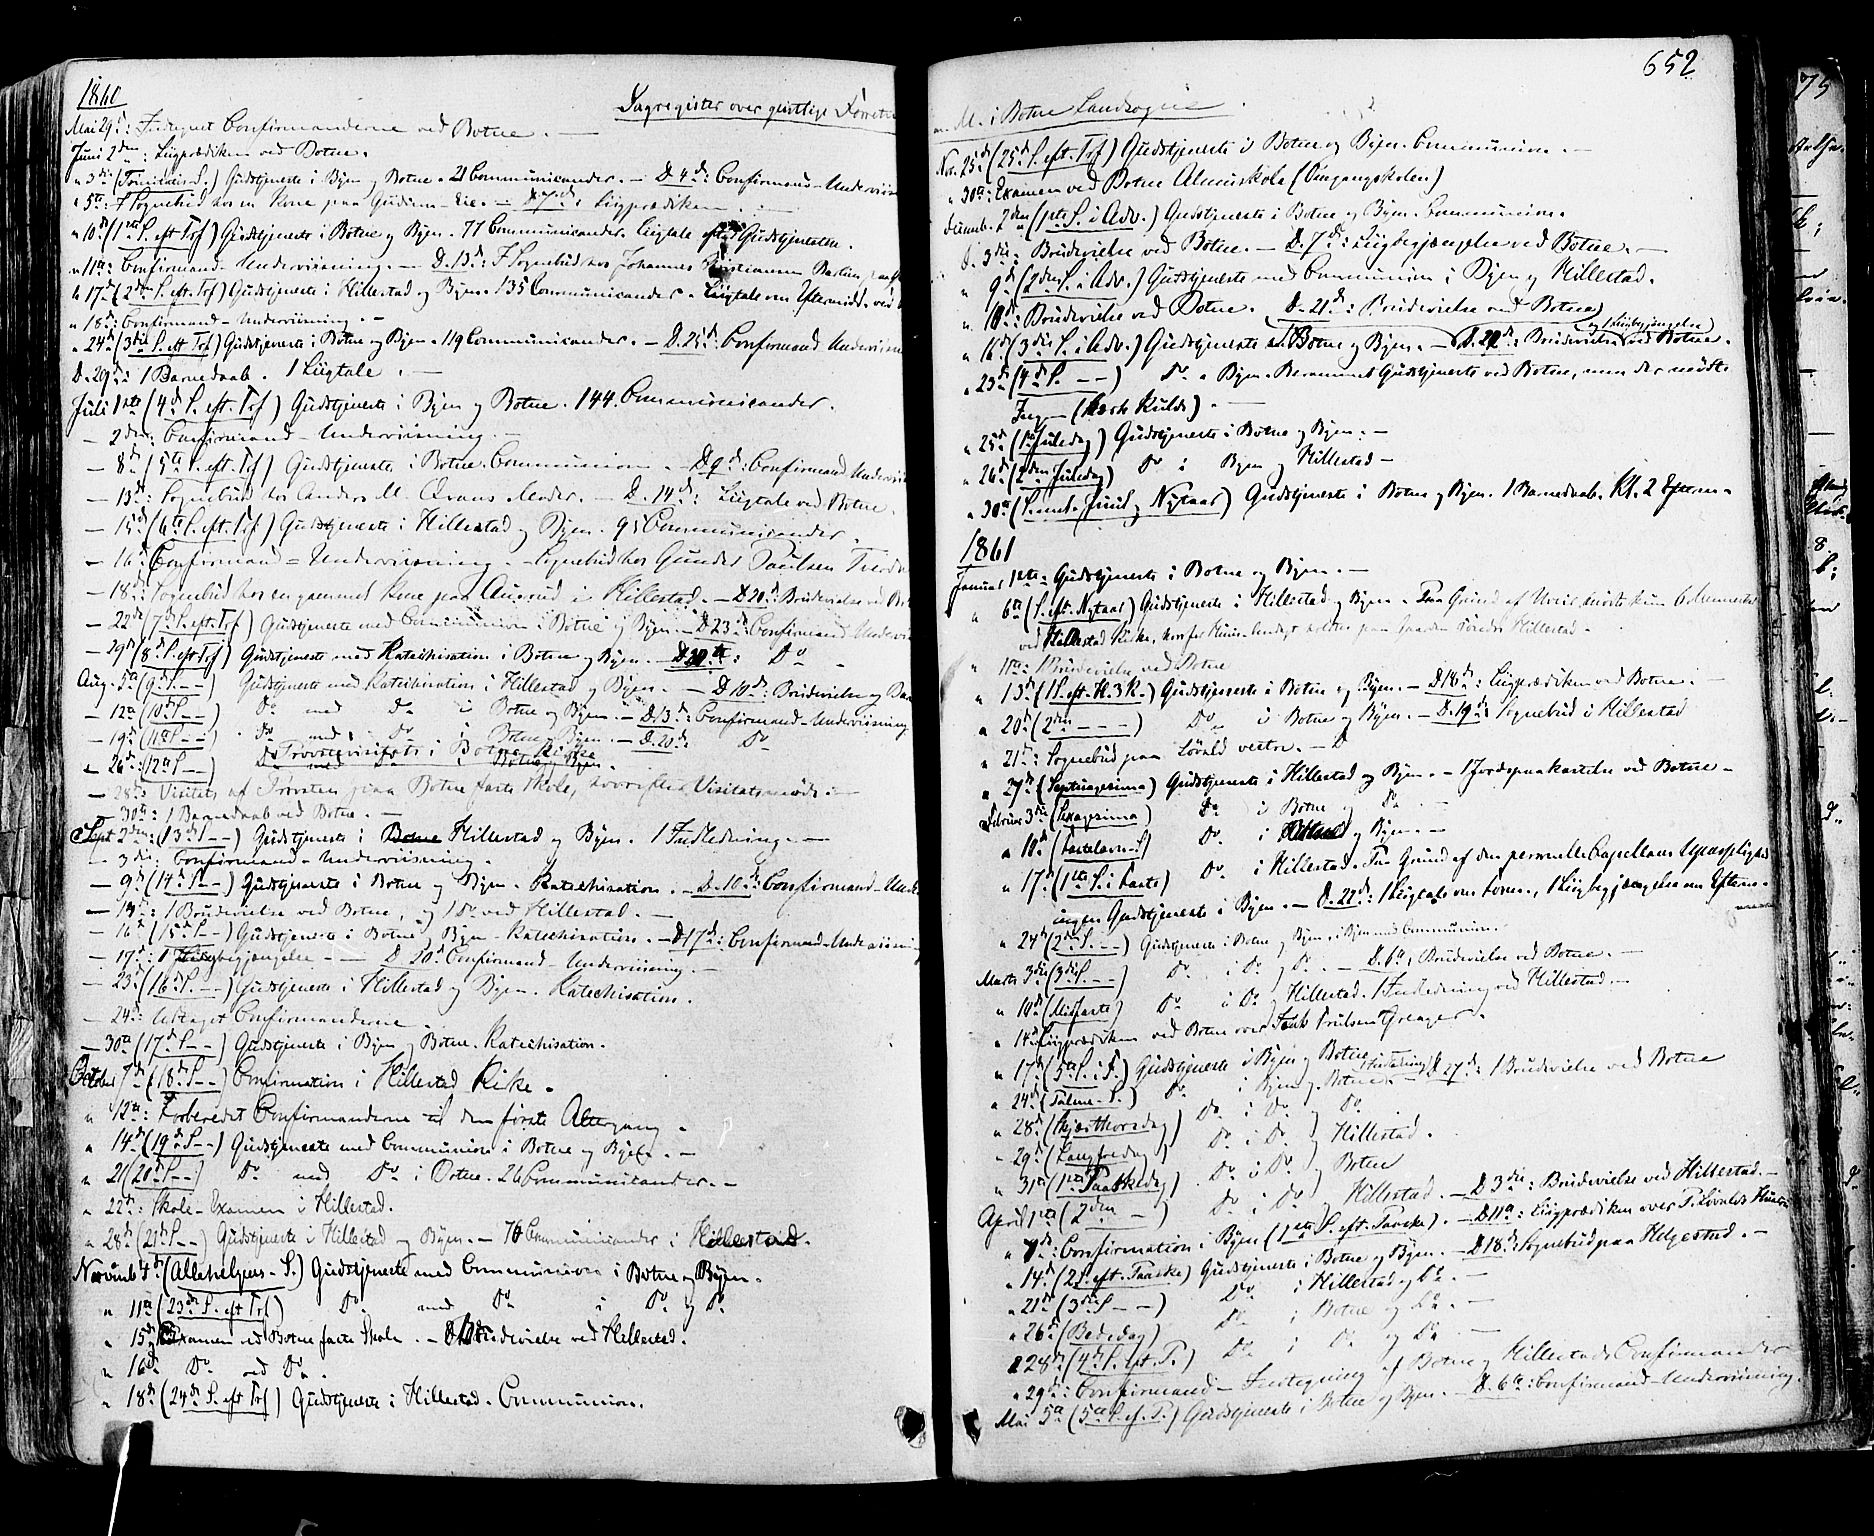 1860
Dagregister over geistlige Forretn
Mai 29de: Indtegnet Confirmanderne ved Botne. —
Juni 2den: Liigprædiken ved Botne.
" 3die (Trinitatis S.) Gudstjeneste i Byen og Botne. 21 Communicander. — D. 4de: Confirmand-Underviisn
" 5te: 1 Sognebud hos en Kone paa — D. 7de: Liigprædiken. —
" 10de (1ste S. eft. Tref) Gudstjeneste i Botne og Byen. 77 Communicander. Liigtale efter Gudstjenesten.
" 11te: Confirmand-Underviisning. — D. 13de: 1 Sognebud hos Johannes
" 17de (2den S. eft. Tref) Gudstjeneste i Hillestad og Byen. 135 Communicander. Liigtale om Eftermidd. ved
" 18de: Confirmand-Underviisning. —
" 24de (3die S. eft. Tref) Gudstjeneste i Botne og Byen. 119 Communicander. — D. 25de: Confirmand Underviisn
D. 29de: 1 Barnedaab. 1 Liigtale. —
Juli 1ste (4de S. eft. Tref) Gudstjeneste i Byen og Botne. 144 Communicander.
— 2den: Confirmand-Underviisning. —
— 8de (5te S. eft. Tref) Gudstjeneste i Botne. Communion. — D. 9de: Confirmand Undervii
— 13de: Sognebud hos Anders M. Moder. — D. 14de: Liigtale ved Botne.
— 15de (6te S. eft. Tref) Gudstjeneste i Hillestad og Byen. 95 Communicander.
— 16de: Confirmand-Underviisning. — Sognebud hos Gunder Paulsen
— 18de: Sognebud hos en gammel Kone paa i Hillestad. — D. 20de: Brudevielse ved Bo
— 22de (7de S. eft. Tref) Gudstjeneste med Communion i Botne og Byen. — D. 23de: Confirmand Undervii
— 29de (8de S. eft. Tref) Gudstjeneste med Katechisation i Botne og Byen. — Do
Aug. 5te (9de S. — —) Gudstjeneste med Katechisation i Hillestad og Byen. — D. 10de: Brudevielse og
— 12te (10de S — —) Do med Do i Botne og Byen. — D. 13de: Confirmand-Underviisning
— 19de (11te S — —) Do med Do i Botne og Byen. — D. 20de Do
Provstevisitats i Botne Kirke
— 26de (12te S — —) Do med Do i Botne og Byen.
— 28de: Visitats af Provsten paa Botne faste Skole, hvorefter Visitatsmøde. —
— 30te: 1 Barnedaab ved Botne. —
Sept 2den: (13de S — —) Gudstjeneste i Hillestad og Byen. 1 Indledning. —
— 3die: Confirmand-Underviisning.
— 9de (14de S — —) Gudstjeneste i Botne og Byen. Katechisation. — D. 10de: Confirmand-Unde
— 13de: 1 Brudevielse ved Botne, og 1 Do ved Hillestad. —
— 16de (15de S — —) Gudstjeneste i Botne og Byen. Katechisation. — D 17de: Confirmand-Underviisning
— 17de: 1 Liigbegjængelse. — D. 20de Confirmand-Underviisning. —
— 23de (16de S — —) Gudstjeneste i Hillestad og Byen. Katechisation.
— 24de: Confirmanderne.
— 30te (17de S — —) Gudstjeneste i Byen og Botne. Katechisation.
October 7de (18de S — —) Confirmation i Hillestad Kirke.
" 12te: Forberedet Confirmanderne til den første Altergang.
" 14de (19de S — —) Gudstjeneste med Communion i Botne og Byen. —
" 21 (20de S — —) Do med Do i Botne. 26 Communicander. —
" 22de: Skole-Examen i Hillestad.
" 28de (21de S — —) Gudstjeneste i Hillestad og Byen. — 76 Communicander i Hillestad.
Novemb 4de (Allehelgens-S.) Gudstjeneste med Communion i Botne og Byen.
" 11te (23de S. eft Tref) Do med Do i Do og Do
" 15de Examen ved Botne faste Skole. — Brudevielse ved Hillestad.
" 16de Do ved Do.
" 18de (24de S. eft Tref) Gudstjeneste i Hillestad. Communion.
652
m. M. i Botne Landsogne
Nov. 25de (25de S. eft. Tref) Gudstjeneste i Botne og Byen. Communion. —
" 30te: Examen ved Botne Almueskole (Omgangsskolen)
Decemb. 2den (1ste S. i Adv.) Gudstjeneste i Botne og Byen. Communion.
D. 3die: Brudevielse ved Botne. — D. 7de: Liigbegjængelse ved Botne. —
" 9de (2den S. i Adv.) Gudstjeneste med Communion i Byen og Hillestad.
" 10de: Brudevielse ved Botne. D. 21de: Brudevielse ved Botne
og 1 Liigbegjængelse
" 16de (3die S. i Adv.) Gudstjeneste i Botne og Byen. — Brudevielse ved Botne.
" 23de (4de S. — —) Do i Byen. Berammet Gudstjeneste ved Botne, men der mødte
Ingen (stærk Kulde).
" 25de (1ste Juledag) Gudstjeneste i Botne og Byen. —
" 26de (2den Juledag) Do i Byen og Hillestad —
" 30te (S. ml. Juul og Nytaar) Gudstjeneste i Botne og Byen. 1 Barnedaab. Kl. 2 Efterm. —
1861
Januar 1ste: Gudstjeneste i Botne og Byen. —
" 6te (S. eft. Nytaar) Gudstjeneste i Hillestad og Byen. Paa Grund af mødte kun 6 Mennesker
ved Hillestad Kirke, hvorfor paa Gaarden Hillestad. —
" 11te: 1 Brudevielse ved Botne
" 13de (1 S. eft. H. 3 K.) Gudstjeneste i Botne og Byen. — D. 18de: Liigprædiken ved Botne. —
" 20de (2den — — —) Do i Botne og Byen. — D. 19de: Sognebud i Hillestad
" 21de: Sognebud paa vestre. —
" 27de (Septuagesima) Gudstjeneste i Hillestad og Byen. — 1 Jordspaakastelse ved Botne —
Februar 3die (Sexagesima) Do i Botne og Do —
" 10de (Fastelavns-S) Do i og Byen. —
" 17de (1ste S. i Faste) Do i Hillestad. Paa Grund af den personelle Capellans Upasselighed
ingen Gudstjeneste i Byen. — D. 22de: 1 Liigtale om Form., 1 Liigbegjængelse om Efterm.
" 24de (2den S. — —) Gudstjeneste i Botne og Byen, i Byen med Communion.
Marts 3die (3die S. — —) Do i Do og Do. — D. 6te: Brudevielse ved Botne. —
" 10de (Midfaste) Do i Do og Hillestad. 1 Indledning ved Hillestad. —
" 14de Liigprædiken ved Botne over Isak Poulsen Greager.
" 17de (5te S. i F.) Gudstjeneste i Byen og Botne D. 27de: 1 Brudevielse ved Botne
" 24de (Palme-S.) Do i Byen og Botne. —
" 28de (Skjærthorsdag) Do i Do og Do
" 29de (Langfredag) Do i Do og Hillestad.
" 31te (1ste Paaskedag) Do i Do og Botne
April 1ste (2den — ) Do i Do og Hillestad. — D. 3die: Brudevielse ved Hillestad. —
" 7de: Confirmation i Byen (1ste S. eft. Paaske). — D. 11te: Liigprædiken over Hustru
" 14de (2 S. eft. Paaske) Gudstjeneste i Botne og Byen. — D. 18de: Sognebud paa Helgestad. —
" 21de (3die S — —) Do i Hillestad og Do. —
" 26de (Bededag) Do i Botne og Do. —
" 28de (4de S. eft. P.) Do i Do og Do. —
" 29de: Confirmand-Indtegning af Botne og Hillestads Confirmander
Mai 5te (5te S. ef. P.) Gudstjeneste i Botne og Byen. — D. 6te: Confirmand-Underviisning.
75